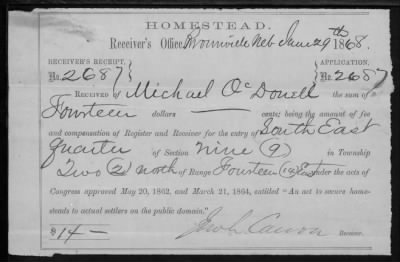 HOMESTEAD.
Receiver's Office, Brownville Neb June 29th 1868.
RECEIVER'S RECEIPT,
No. 2687
APPLICATION,
No. 2687
RECEIVED of Michael O'Donell the sum of
Fourteen dollars cents; being the amount of fee
and compensation of Register and Receiver for the entry of South East
quarter of Section nine (9) in Township
Two (2) north of Range Fourteen (14) East under the acts of
Congress approved May 20, 1862, and March 21, 1864, entitled "An act to secure home-
steads to actual settlers on the public domain."
$14— Receiver.